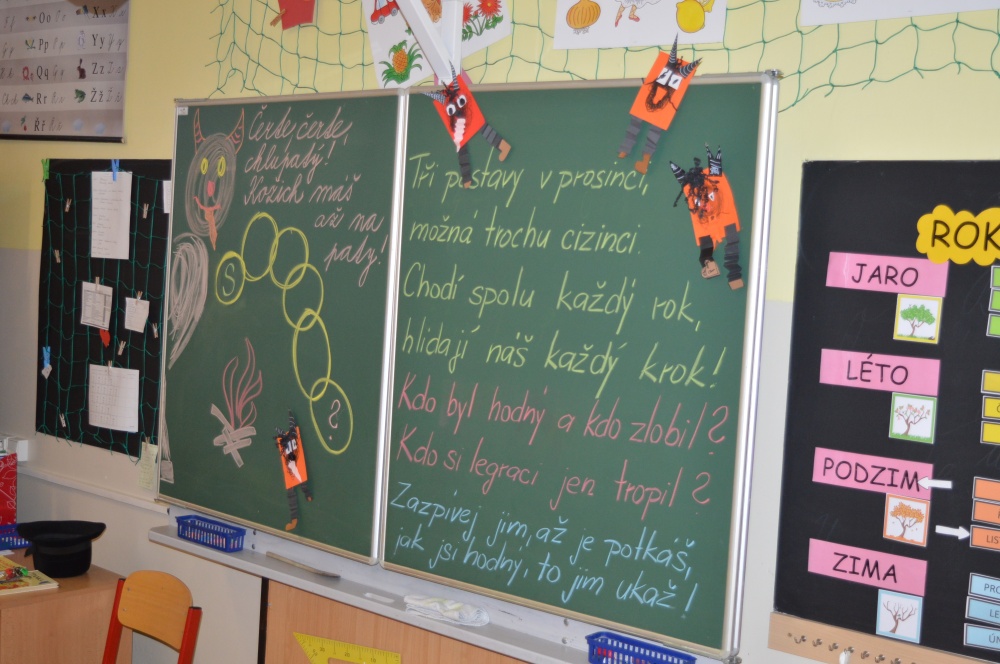 Oo
Pp
Yy
Qq
Zz
Rr
Žž
Řř
Čerte čerte,
chlupatý!
Kožich máš
až na
paty!
S
?
Tři postavy v prosinci,
možná trochu cizinci.
Chodí spolu každý rok,
hlídají náš každý krok!
Kdo byl hodný a kdo zlobil?
Kdo si legraci jen tropil?
Zazpívej jim, až je potkáš,
jak jsi hodný, to jim ukaž!
ROK
JARO
LÉTO
PODZIM
ZIMA
LIS
PRO
LE
ÚN